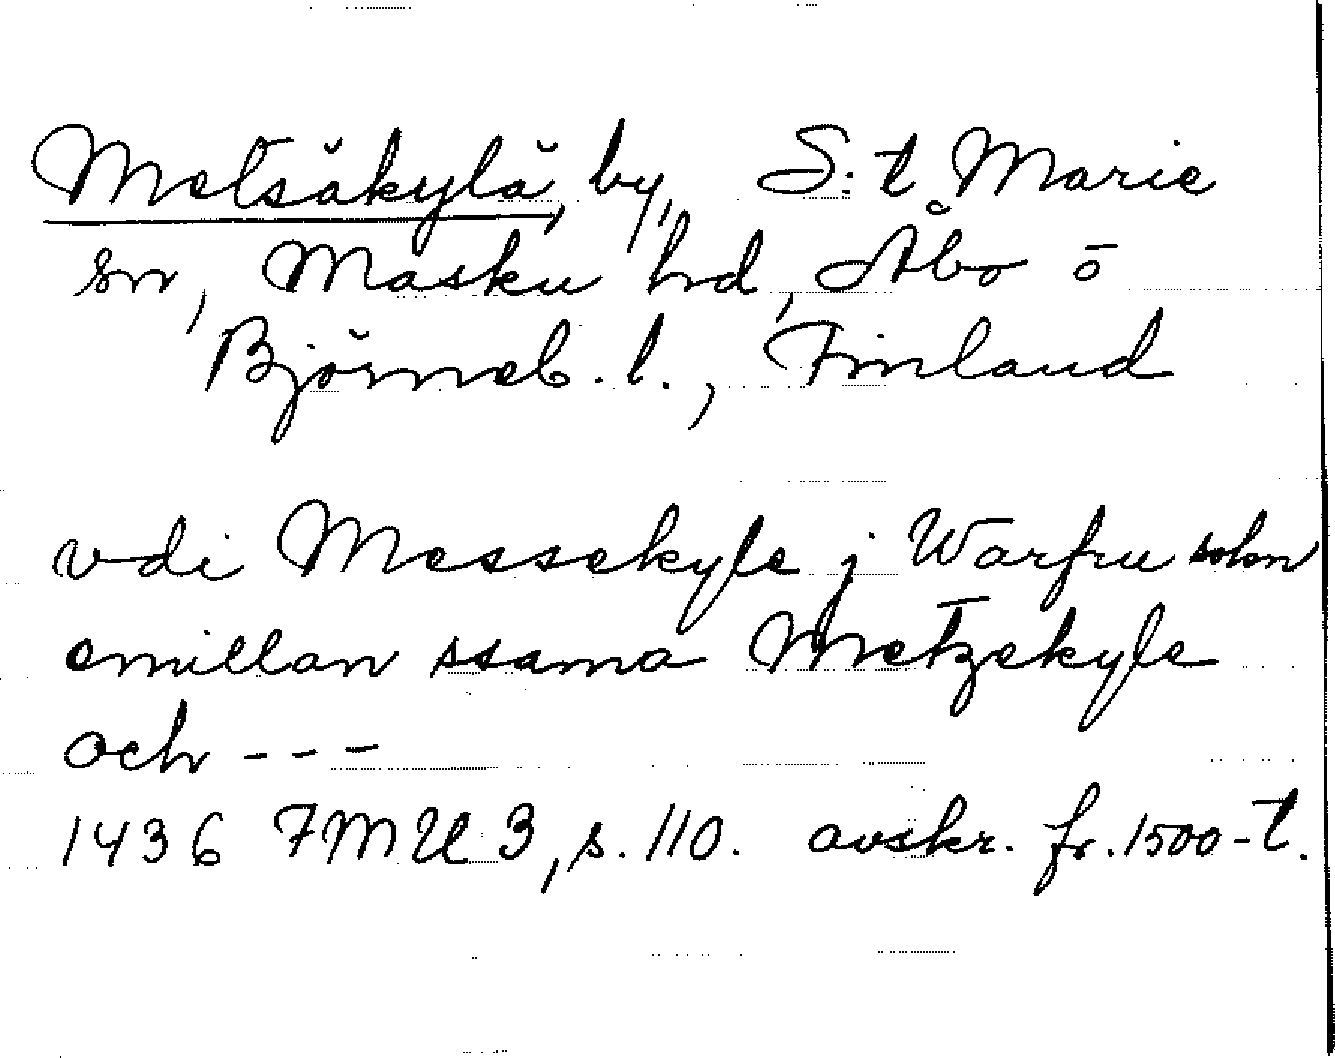 Metsäkylä, by, S:t Marie
sn, Masku hrd, Åbo o
Björneb. l., Finland
vdi Messekyle j Warfru sokn
emillan ssama Metzekyle
och - - -
1436 FMU 3, s. 110. avskr. fr. 1500-t.